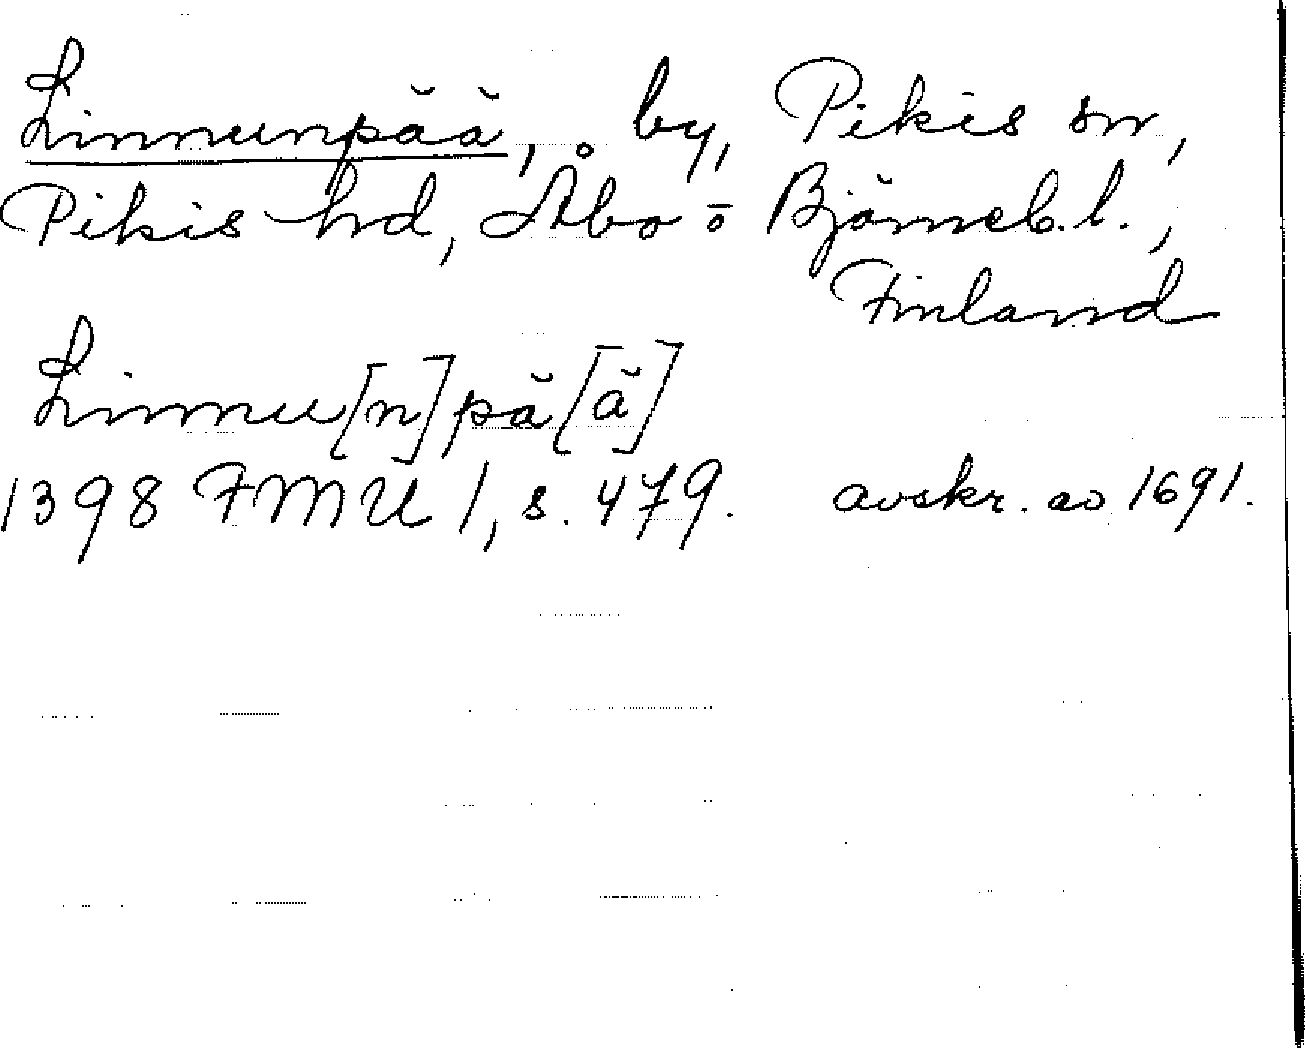 Linnunpää, by, Pikis sn,
Pikis hd, Åbo o Björneb. l.,
Finland
Linnu[n]pä[ä]
1398 FMU 1, s. 479. avskr. av 1691.